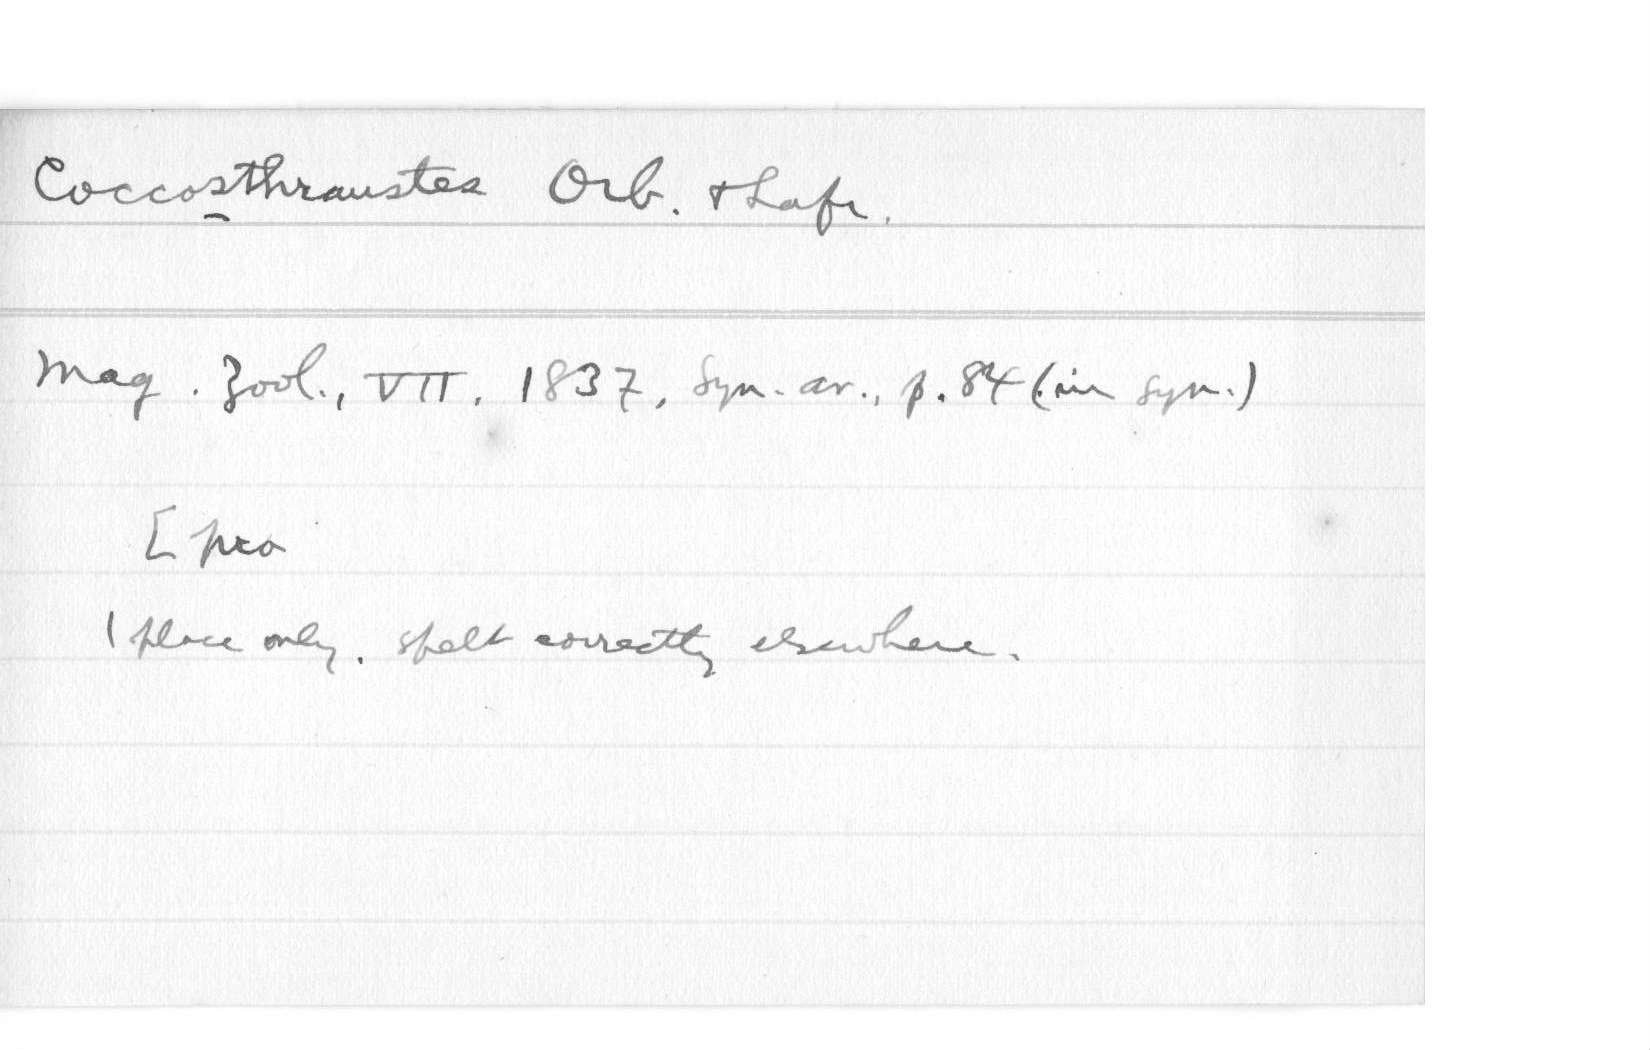 Coccosthraustes Orb. + Lafr.
Mag. Zool., VII, 1837, Syn. av., p. 84 (in syn.)
[ pro
1 place only. spelt correctly elsewhere.